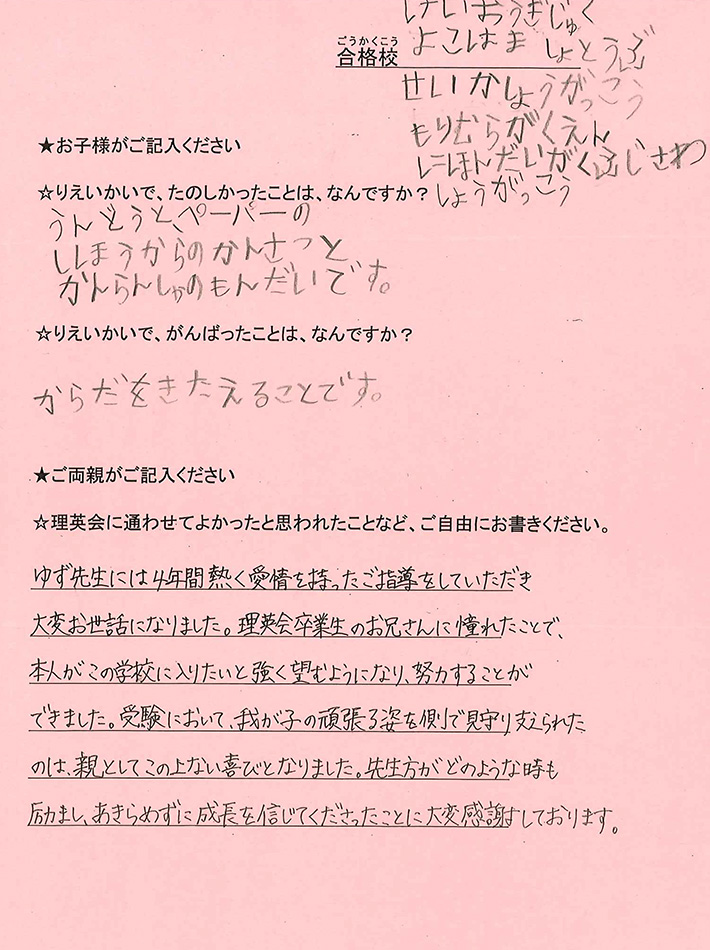 けいおうぎじゅく
ごうかくこう
合格校
よこはま しょとうぶ
せいかしょうがっこう
もりむらがくえん
にほんだいがくふじさわ
しょうがっこう
★お子様がご記入ください
☆りえいかいで、たのしかったことは、なんですか？
うんどうと、ペーパーの
しほうからのかんさつと
かんらんしゃのもんだいです。
☆りえいかいで、がんばったことは、なんですか？
からだをきたえることです。
★ご両親がご記入ください
☆理英会に通わせてよかったと思われたことなど、ご自由にお書きください。
ゆず先生には4年間熱く愛情を持ったご指導をしていただき
大変お世話になりました。理英会卒業生のお兄さんに憧れたことで、
本人がこの学校に入りたいと強く望むようになり、努力することが
できました。受験において、我が子の頑張る姿を側で見守り支えられた
のは、親としてこの上ない喜びとなりました。先生方がどのような時も
励まし、あきらめずに成長を信じてくださったことに大変感謝しております。